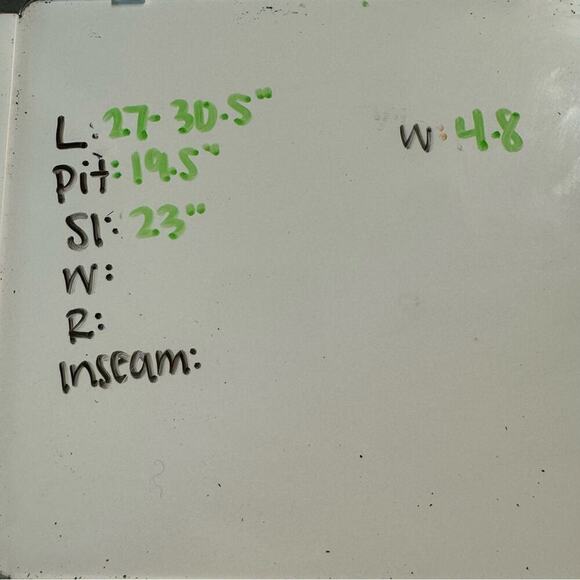 L: 27-30.5"
Pit: 19.5"
Sl: 23"
W:
R:
Inseam:
W: 4.8